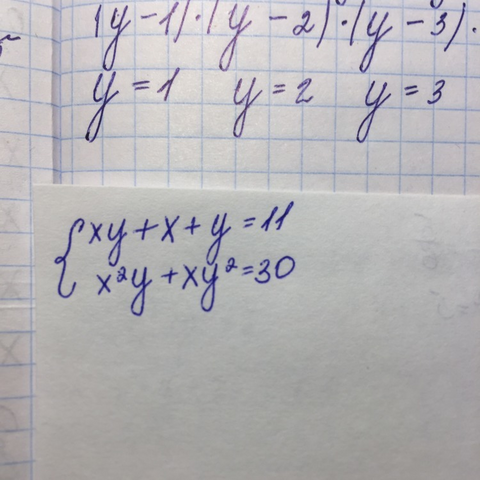 (y-1)·(y-2)·(y-3)·
y=1 y=2 y=3
{xy+x+y=11
x²y+xy²=30